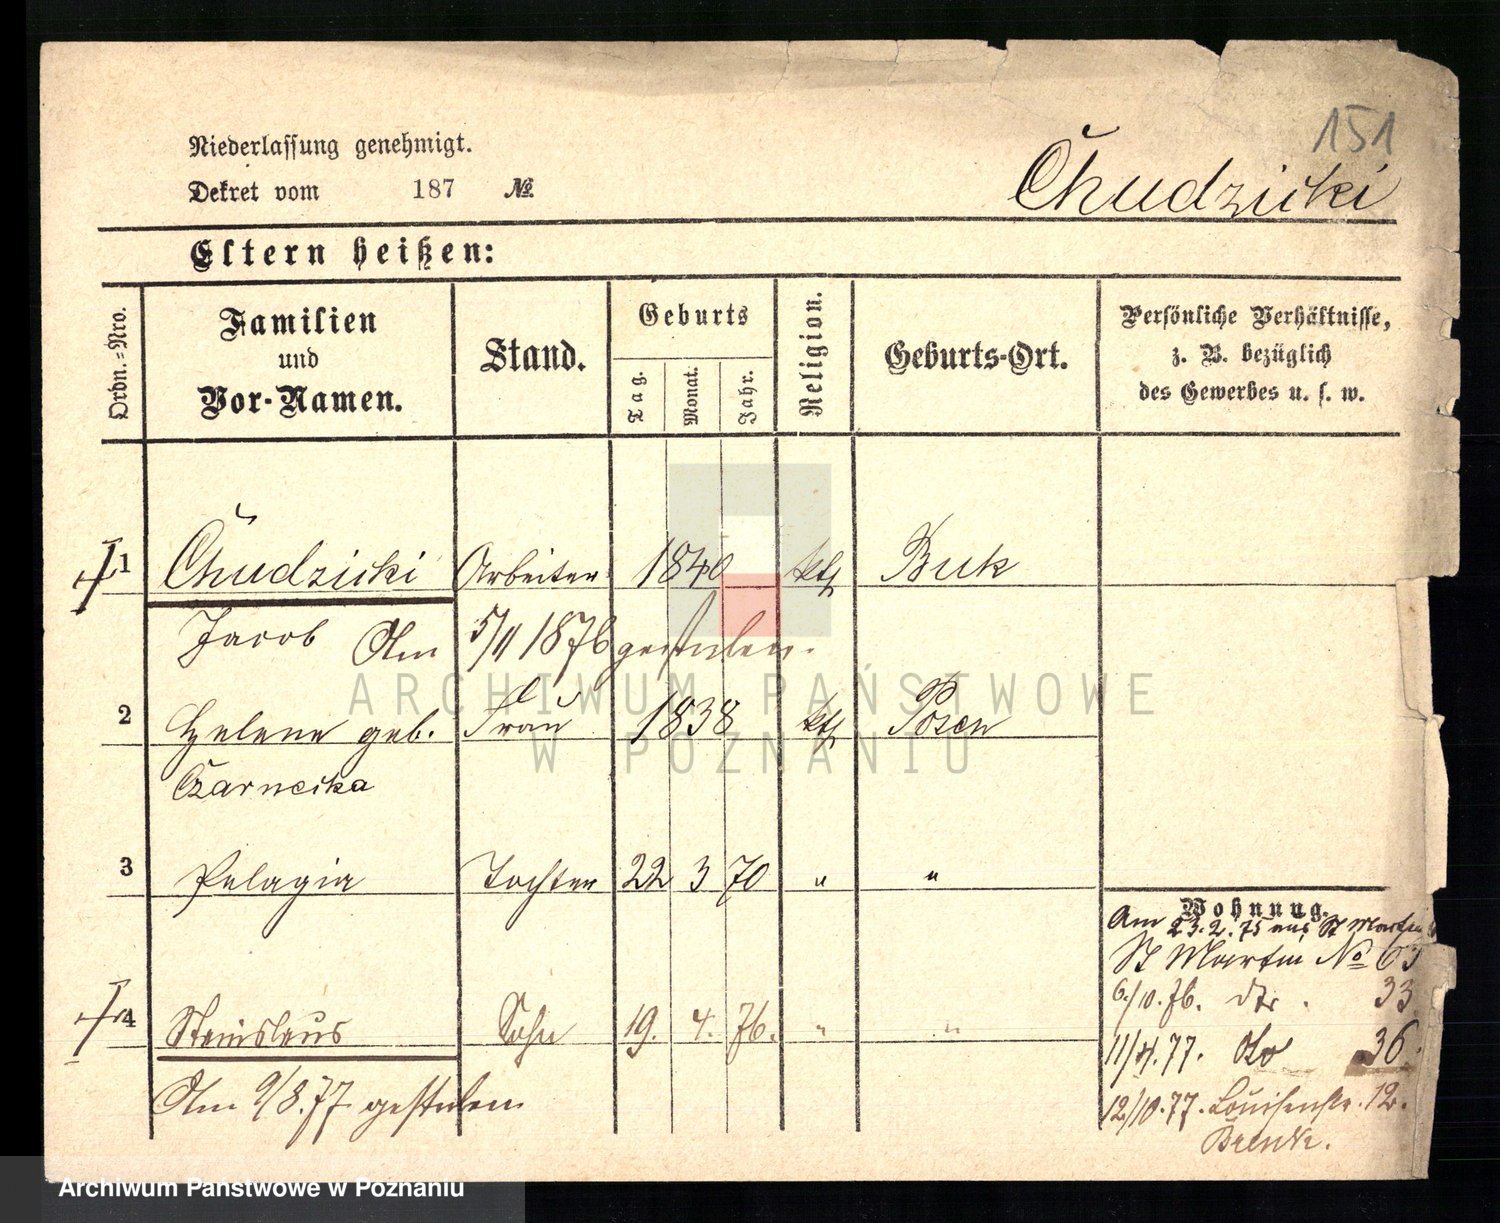 151
Niederlassung genehmigt.
Dekret vom 187 №
Chudzicki
Eltern heißen:
Ordn.=Nro.
Familien und Vor-Namen.
Stand.
Geburts
Tag.
Monat.
Jahr.
Religion.
Geburts-Ort.
Persönliche Verhältnisse,
z. B. bezüglich
des Gewerbes u. s. w.
1 Chudzicki Arbeiter 1840 kth Buk
Jacob Am 5/11 1876 gestorben.
2 Helene geb. Frau 1838 kth Posen
Czarnecka
3 Pelagia Tochter 22 3 70 " "
4 Stanislaus Sohn 19. 4. 76. " "
Am 9/8.77 gestorben
Wohnung.
Am 23.2.75 aus St Martin
St Martin No 63
6/10.76. dto. 33
11/4.77. dto 36.
12/10.77. Louisenstr. 12.
ARCHIWUM PAŃSTWOWE
W POZNANIU
Archiwum Państwowe w Poznaniu